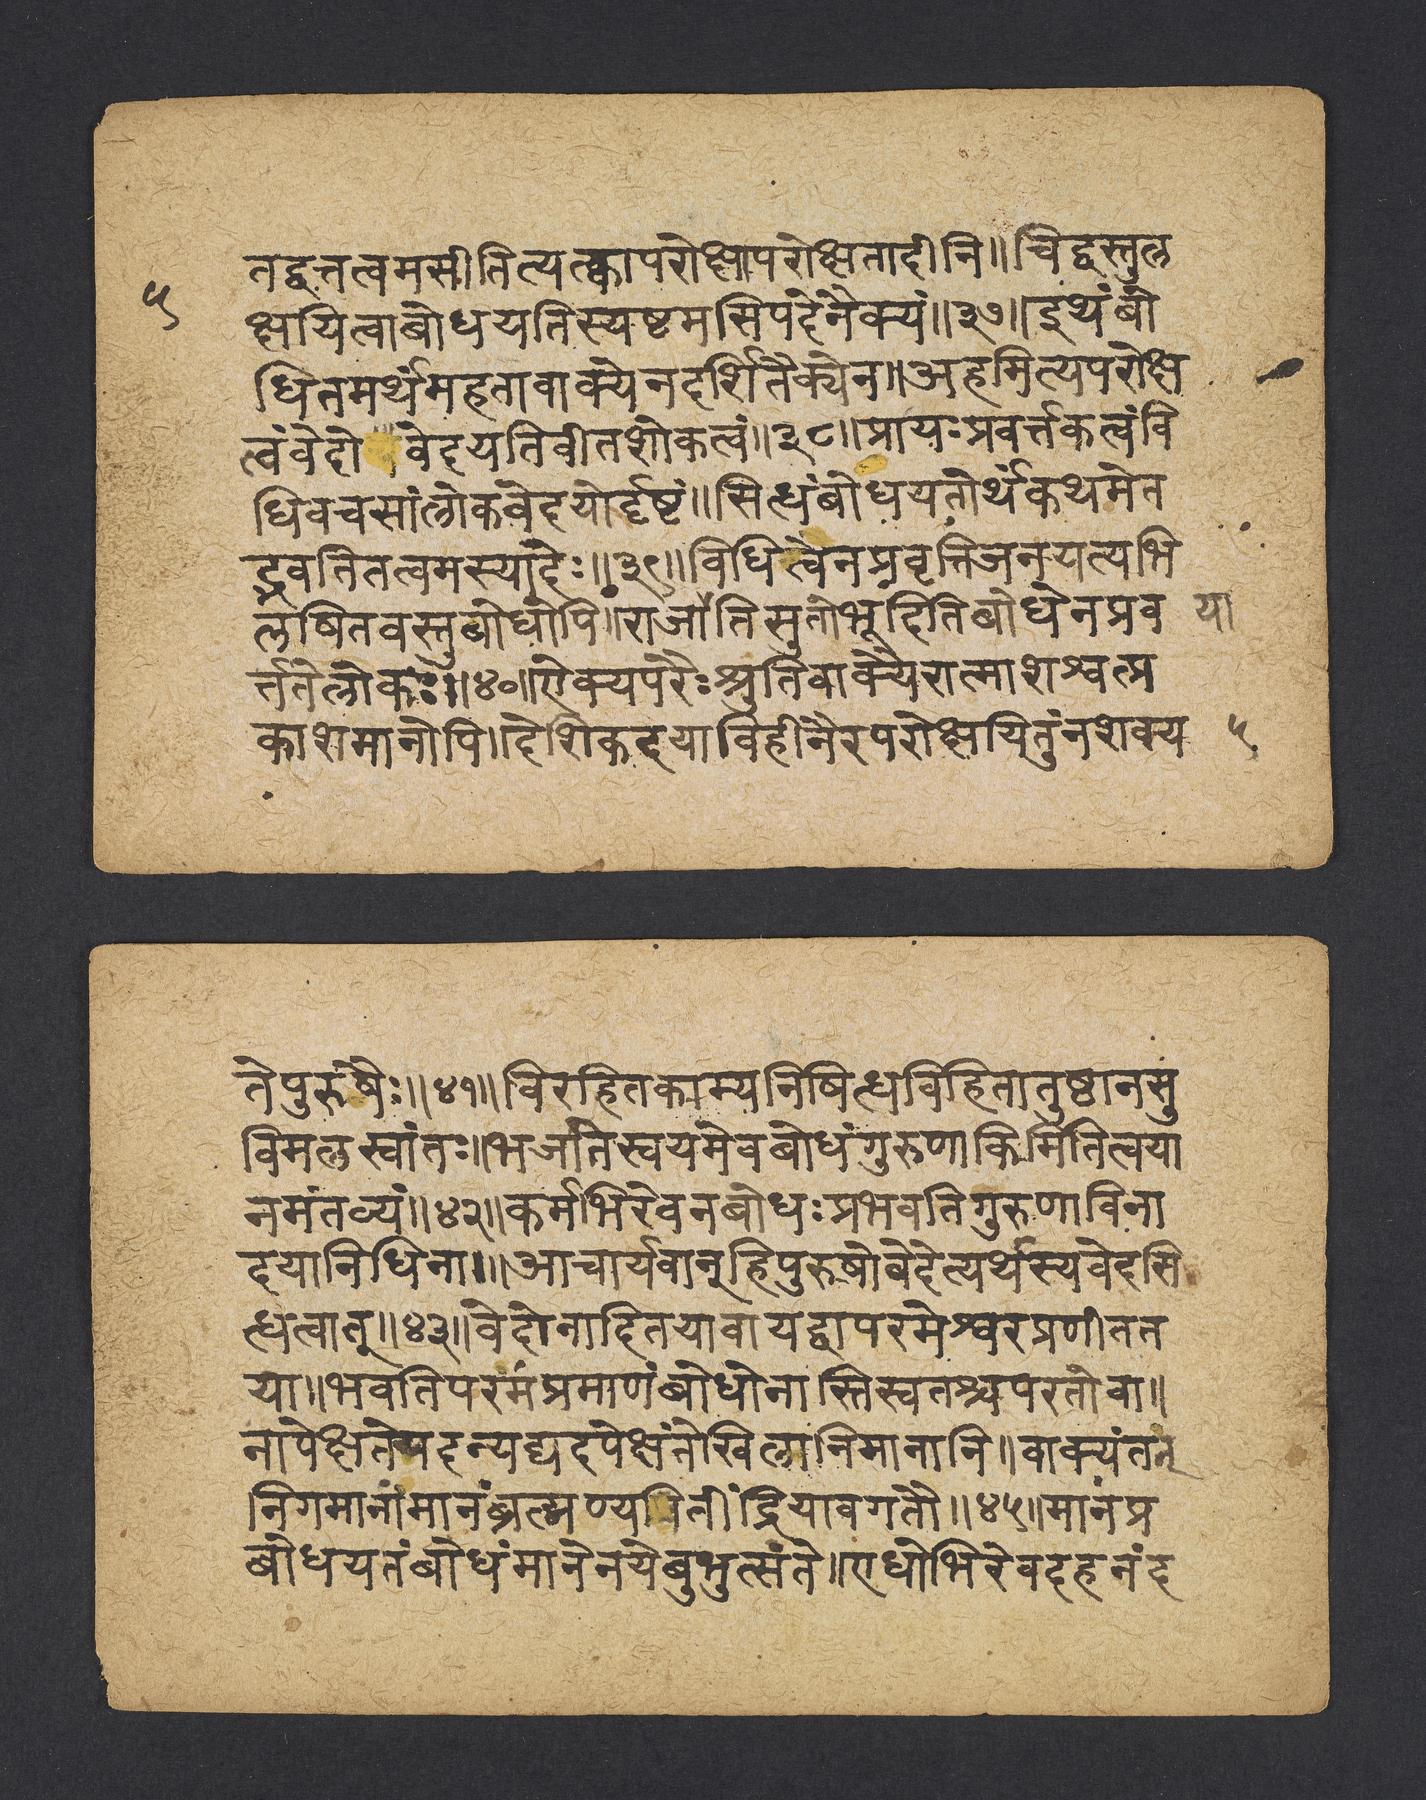 तद्वत्तत्वमसीतित्यत्क्कापरोक्षापरोक्षतादीनि॥चिद्वस्तुल
५
क्षयित्वाबोधयतिस्यष्टमसिपदेनैक्यं॥३७॥इथंबो
धितमर्थंमहतावाक्येनदर्शितैक्येन॥अहमित्यपरोक्ष
त्वंवेदो वेदयतिवीतशोकत्वं॥३८॥प्रायःप्रवर्त्तकत्वंवि
धिवचसांलोकवेदयोर्दृष्टं॥सित्धंबोधयतोर्थंकथमेत
द्भवतितत्वमस्यादेः॥३९॥विधित्वेनप्रवृत्तिंजनयत्यभि
लषितवस्तुबोधोपि॥राजातिसुतोभूदितिबोधेनप्रव
या
र्त्ततेलोकः॥४०॥ऐक्यपरैःश्रुतिवाक्यैरात्माशश्वत्प्र
काशमानोपि॥देशिकदयाविहीनैरपरोक्षयितुंनशक्य
५
तेपुरुषैः॥४१॥विरहितकाम्यनिषित्धविहितातुष्ठानसु
विमलस्वांतः॥भजतिस्वयमेवबोधंगुरुणाकिमितित्वया
नमंतव्यं॥४२॥कर्मभिरेवनबोधःप्रभवतिगुरुणाविना
दयानिधिना॥॥आचार्यवान्हिपुरुषोवेदेत्यर्थस्यवेदसि
त्धत्वात्॥४३॥वेदोनादितयावायद्वापरमेश्वरप्रणीतत
या॥भवतिपरमंप्रमाणंबोधोनास्तिस्वतश्चपरतोवा॥
नापेक्षतेयदन्यद्यदपेक्षंतेखिलानिमानानि॥वाक्यंतत्
निगमानांमानंब्रत्मण्यवितींद्रियावगतौ॥४५॥मानंप्र
बोधयतंबोधंमानेनयेबुभुत्संते॥एधोभिरेवदहनंद